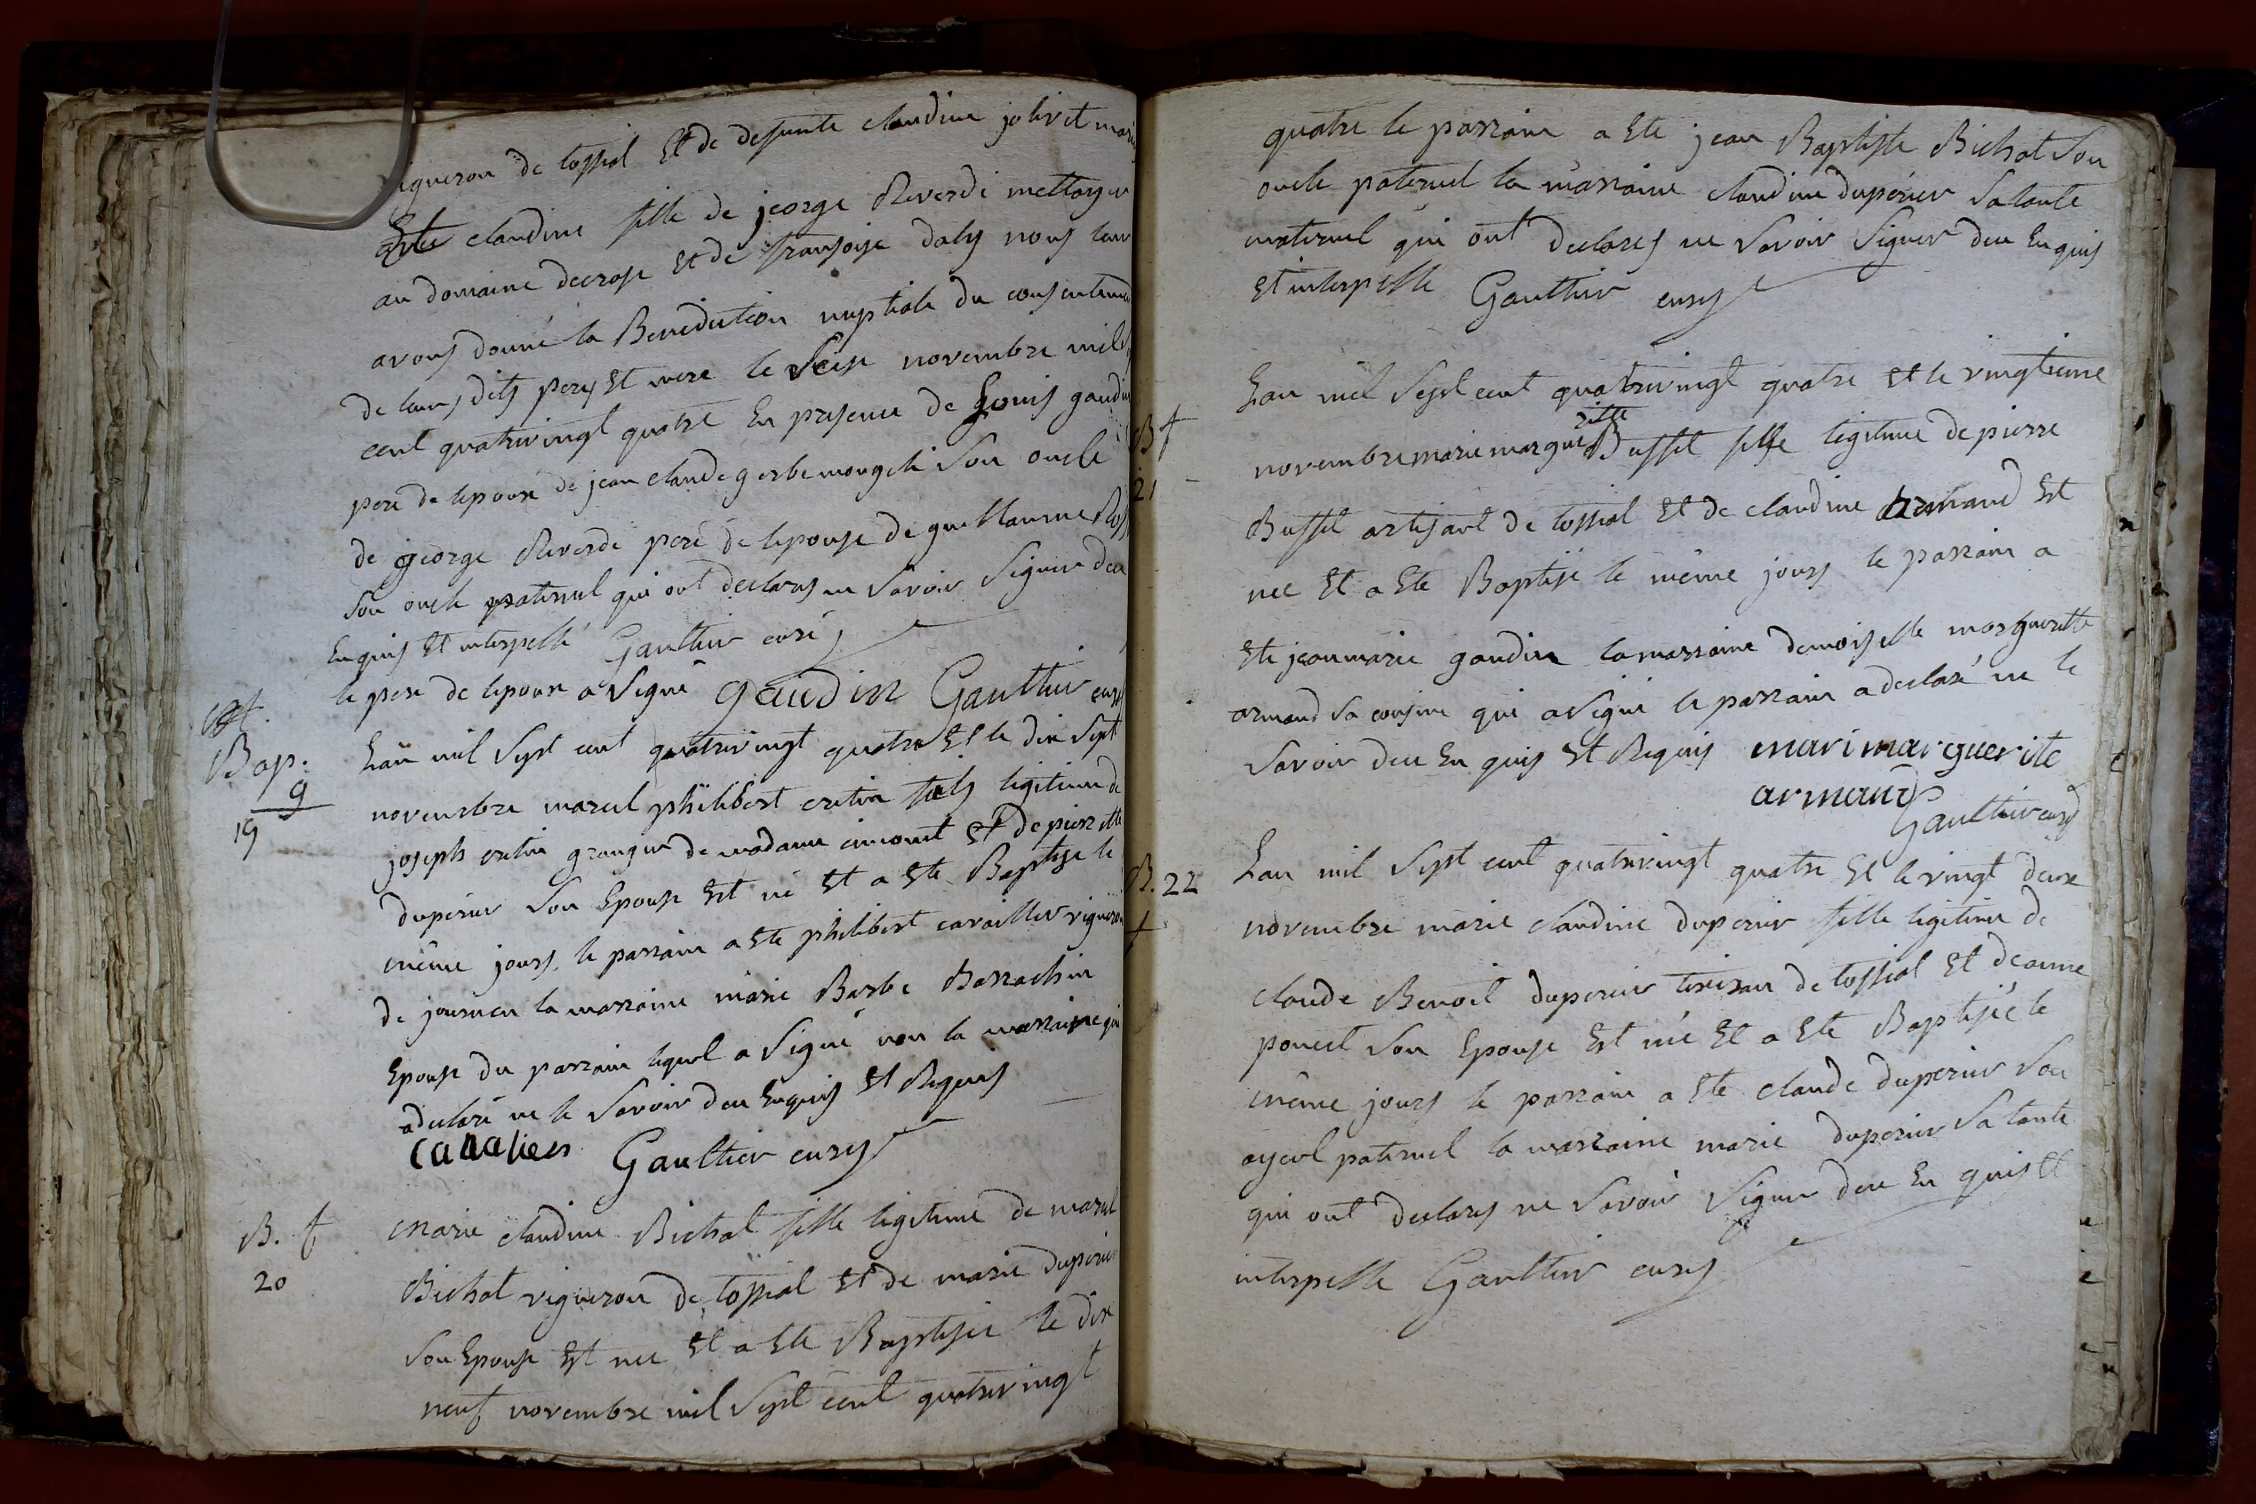 vigneron de tossiat Et de defunte claudine jolivet mariés
Et claudine fille de jeorge Reverdi mettayer
au domaine decrose Et de fransoise daly nous leur
avons donné la Benediction nuptiale du consentement
de leurs dits perest mere le Seise novembre mil
cent quatrevingt quatre En presence de Louis gaudin
pere de lepoux de jean claude gerbe mongeli son oncle
de george Reverdi pere de lepouse de guillaume
son oncle paternel qui ont declares ne Savoir Signer deu
Enquis Et interpellé Gauthier curé
le pere de lepoux a Signé gaudin Gauthier curé
Bap.
g
19
Lan mil Sept cent quatrevingt quatre Et le dix Sept
novembre marcel philibert cretin fils legitime de
joseph cretin granger de madame cimonet Et de pierrette
duperier Son Epouse Est né Et a Ete Baptise le
même jours le parrain a Ete philibert cavaillier vigneron
de journen la marraine marie Barbe Barrachin
Epouse du parrain lequel a Signé non la marraine qui
a declaré ne le Savoir deu Enquis Et Requis
cavaliers Gaulthier curé
B. f
20
marie claudine Bichat fille legitime de marcel
Bichat vigneron de tossiat Et de marie duperier
Son Epouse Est nee Et a Ete Baptisée le dix
neuf novembre mil Sept cent quatrevingt
quatre le parrain a Ete jean Baptiste Bichat Son
oncle paternel la marraine claudine duperier Sa tante
maternel qui ont declares ne Savoir Signer deu Enquis
Et interpelle Gaulthier curé
B f
21
Lan mil Sept cent quatrevingt quatre Et le vingtieme
novembre marie margueritte Buffet fille legitime de pierre
Buffet artisant de tossiat Et de claudine armand Est
nee Et a Ete Baptisé le même jours le parrain a
Ete jean marie gaudin la marraine demoiselle margueritte
armand Sa cousine qui a Signé le parrain a declaré ne le
Savoir deu En quis Et Requis mari marguerite
armand
Gaulthier curé
B. 22
f
Lan mil Sept cent quatrevingt quatre Et le vingt deux
novembre marie claudine duperier fille legitime de
claude Benoit duperier tiseran de tossiat Et deanne
poncet Son Epouse Est née Et a Ete Baptisée le
même jours le parrain a Ete claude duperier Son
ayeul paternel la marraine marie duperier Sa tante
qui ont declares ne Savoir Signer deu En quis Et
interpelle Gaulthier curé